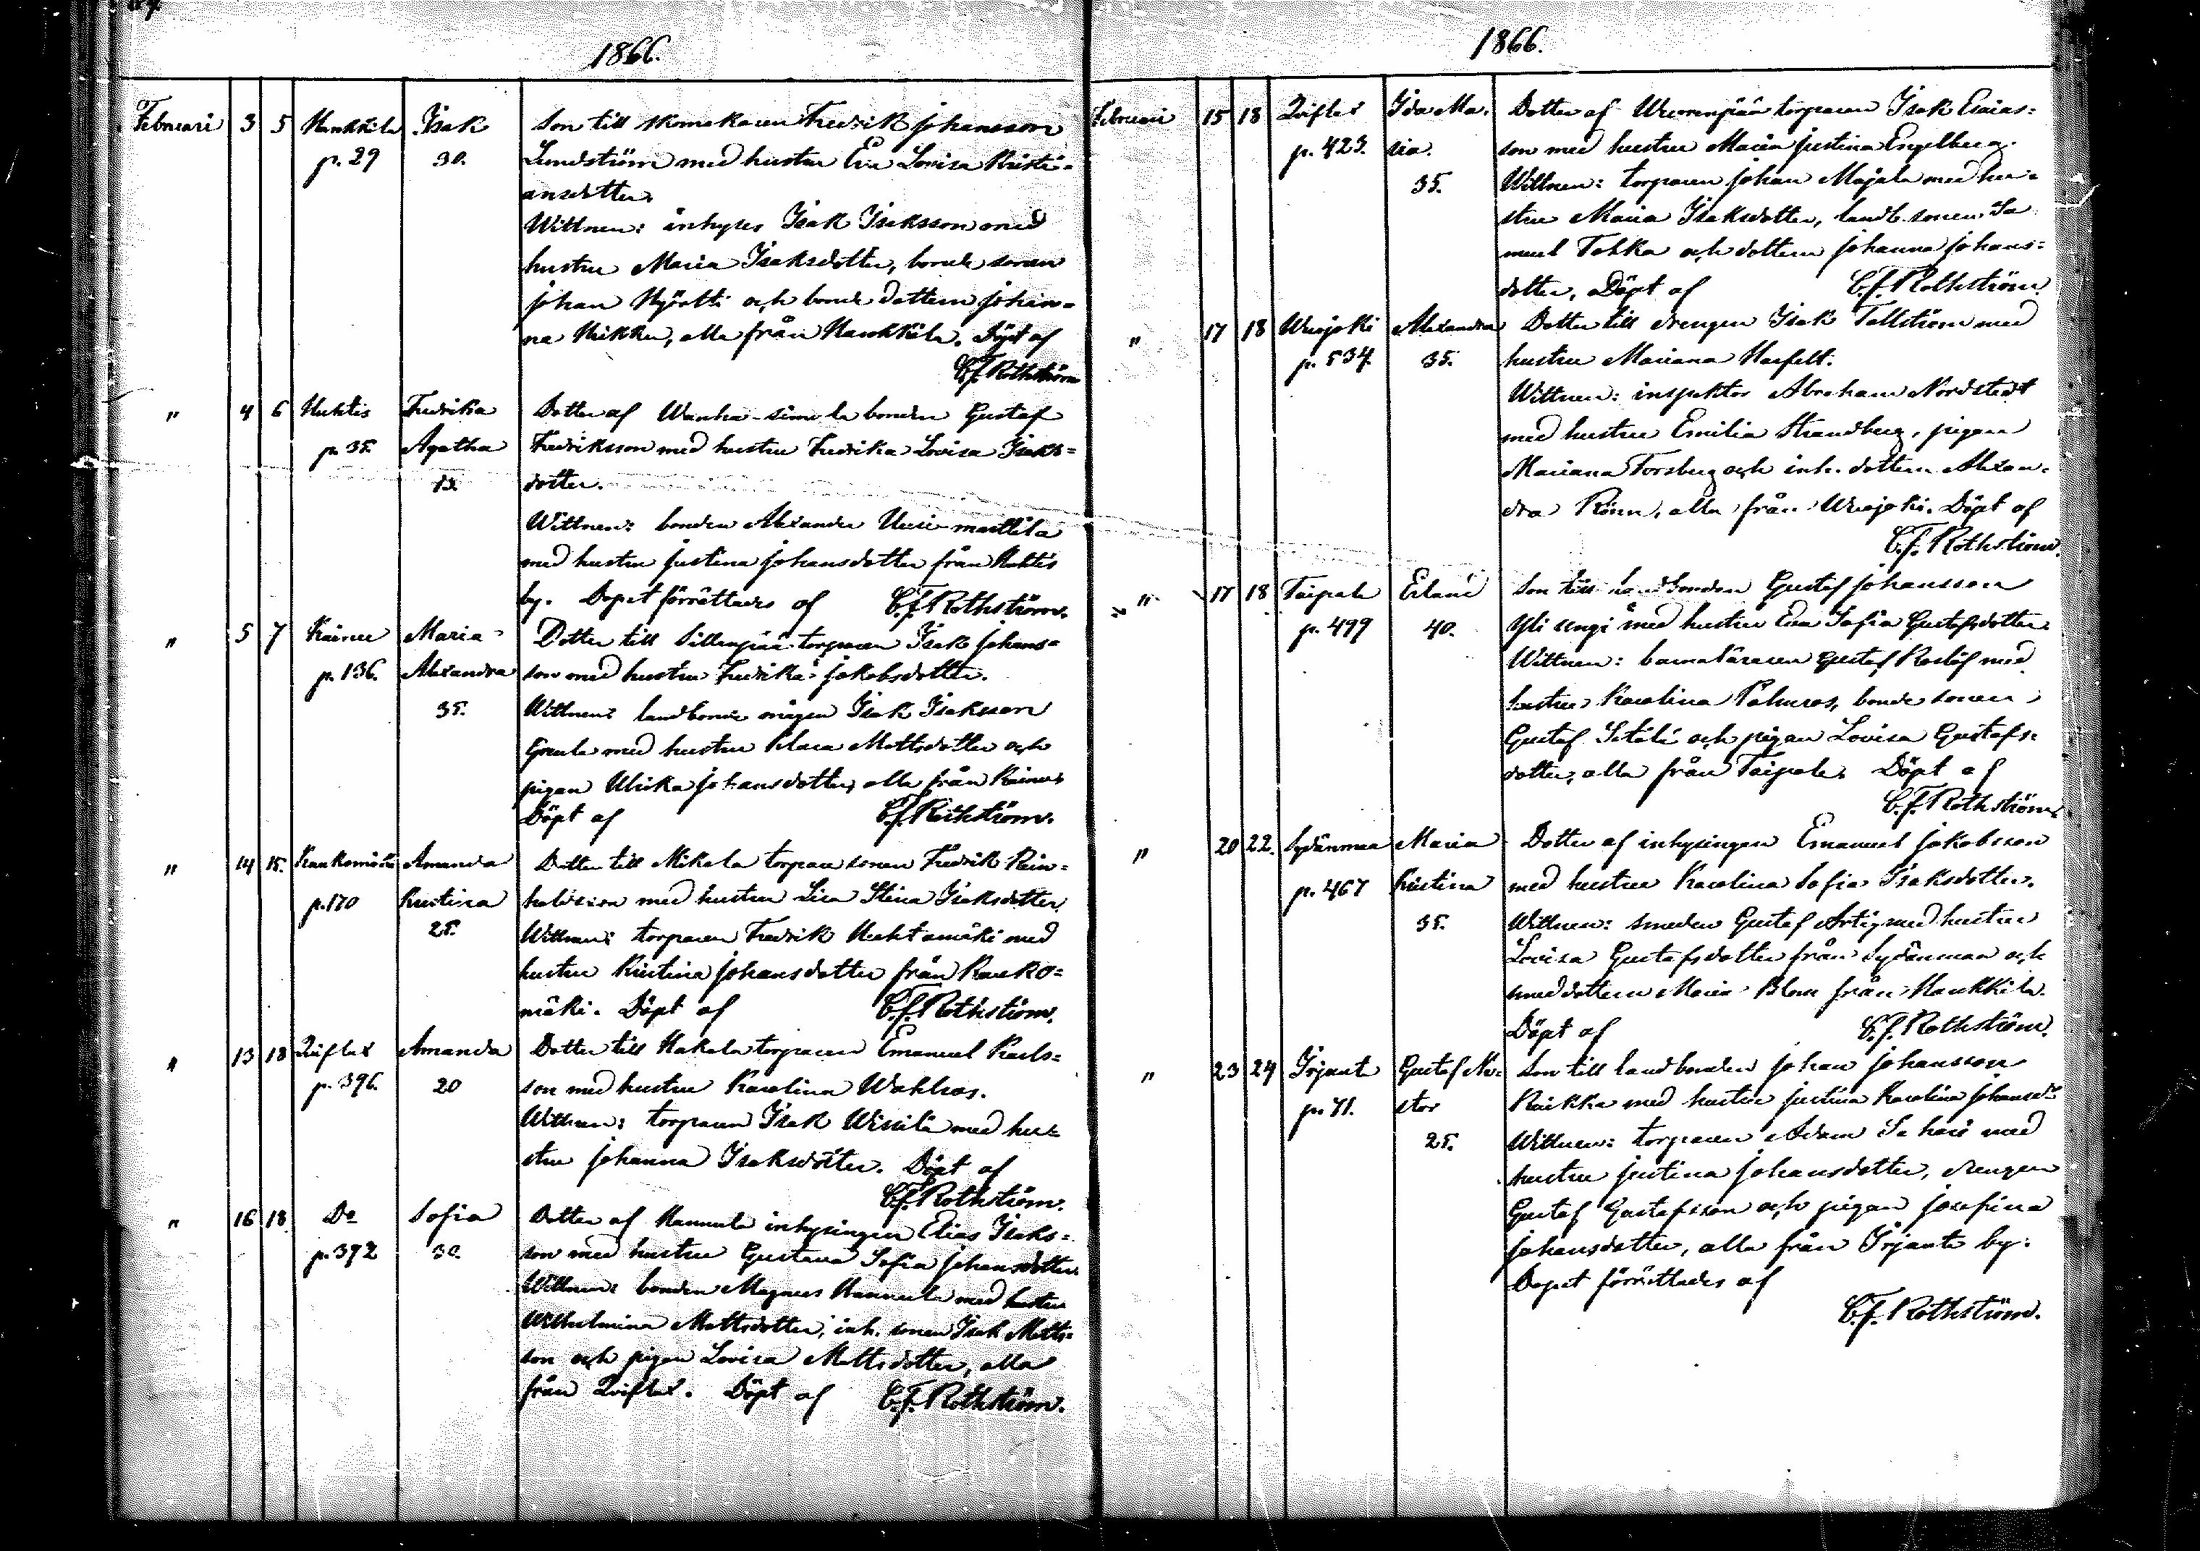 1866.
Februari 3 5 Hankkila Isak Son till skomakaren Fredrik Johansson
p. 29 30. Lundström med hustru Eva Lovisa Kristi-
ansdotter.
Wittnen: inhyses Isak Isaksson med
hustru Maria Isaksdotter, bonde sonen
Johan Kyöstti och bonde dottern Johan-
na Kikka, alla från Hankkila. Döpt af
C.f. Rothström
" 4 6 Huhtis Fredrika Dotter af Wanha-simola bonden Gustaf
p. 35. Agatha Fredriksson med hustru Fredrika Lovisa Isaks-
dotter.
Wittnen: bonden Alexander Uusi-marttila
med hustru Justina Johansdotter från Huhtis
by. Dopet förrättades af C.f. Rothström.
" 5 7 Kainu Maria Dotter till Sillanpää torparen Isak Johans-
p. 136. Alexandra son med hustru Fredrika Jakobsdotter.
35. Wittnen: landbonde mågen Isak Isaksson
med hustru Klara Mattsdotter och
pigan Ulrika Johansdotter, alla från Kainu.
Döpt af C.f. Rothström.
" 14 15. Kaukomäki Amanda Dotter till Mikola torpare sonen Fredrik Rein-
p. 170 Kristina holdsson med hustru Lisa Stina Isaksdotter.
25. Wittnen: torparen Fredrik Huhtamäki med
hustru Kristina Johansdotter från Kauko-
mäki. Döpt af C.f. Rothström.
" 13 18 Qviflax Amanda Dotter till Hakala torparen Emanuel Karls-
p. 396. 20 son med hustru Karolina Wahlros.
Wittnen: torparen Isak Wissilä med hu-
stru Johanna Isaksdotter. Döpt af
C.f. Rothström.
" 16 18 Do Sofia Dotter af Hannula inhysingen Elias Isaks-
p. 392 30. son med hustru Gustava Sofia Johansdotter
Wittnen: bonden Magnus Hannula med hustru
Wilhelmina Mattsdotter, inh. sonen Isak Matts-
son och pigan Lovisa Mattsdotter, alla
från Qviflax. Döpt af C.f. Rothström.
1866.
Februari 15 18 Qviflax Ida Ma- Dotter af Wuorenpää torparen Isak Esaias-
p. 423. ria. son med hustru Maria Justina Engelberg.
35. Wittnen: torparen Johan Majala med hu-
stru Maria Isaksdotter, landb. sonen Sa-
muel Tohka och dottern Johanna Johans-
dotter, Döpt af C.f. Rothström.
" 17 18 Wiujoki Alexandra Dotter till drengen Isak Tallström med
p. 534. 35. hustru Mariana Harfelt.
Wittnen: inspektor Abraham Nordstedt
med hustru Emilia Strandberg, pigan
Mariana Forsberg och inh. dottern Alexan-
dra Rönn, alla från Wiujoki. Döpt af
C.f. Rothström.
" 17 18 Taipale Erland Son till landbonden Gustaf Johansson
p. 499 40. Yli sengi med hustru Eva Sofia Gustafsdotter.
Wittnen: barnaläraren Gustaf Roslöf med
hustru Karolina Påhlroos, bonde sonen
Gustaf Sitälä och pigan Lovisa Gustafs-
dotter, alla från Taipale. Döpt af
C.f. Rothström.
" 20 22. Sydänmaa Maria Dotter af inhysingen Emanuel Jakobsson
p. 467 Kristina med hustru Karolina Sofia Isaksdotter.
35. Wittnen: smeden Gustaf Artig med hustru
Lovisa Gustafsdotter från Sydänmaa och
smeddottern Maria Blom från Hankkila.
Döpt af C.f. Rothström.
" 23 24 Irjanta Gustaf Ne- Son till landbonden Johan Johansson
p. 71. stor Raikka med hustru Justina Karolina Johansdr
25. Wittnen: torparen Adam Sahari med
hustru Justina Johansdotter, drengen
Gustaf Gustafsson och pigan Josefina
Johansdotter, alla från Irjanta by.
Dopet förrättades af
C.f. Rothström.